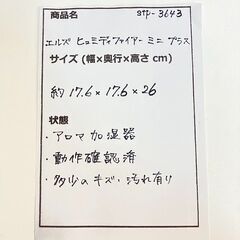 商品名 arp-3643
エルズ ヒュミディファイアー ミニ プラス
サイズ (幅×奥行×高さ cm)
約 17.6 × 17.6 × 26
状態
・アロマ加湿器
・動作確認済
・多少のキズ・汚れ有り